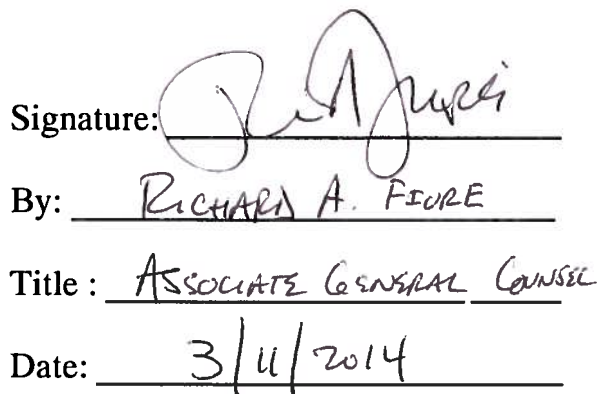 Signature:
By: RICHARD A. FIORE
Title : ASSOCIATE GENERAL COUNSEL
Date: 3/11/2014